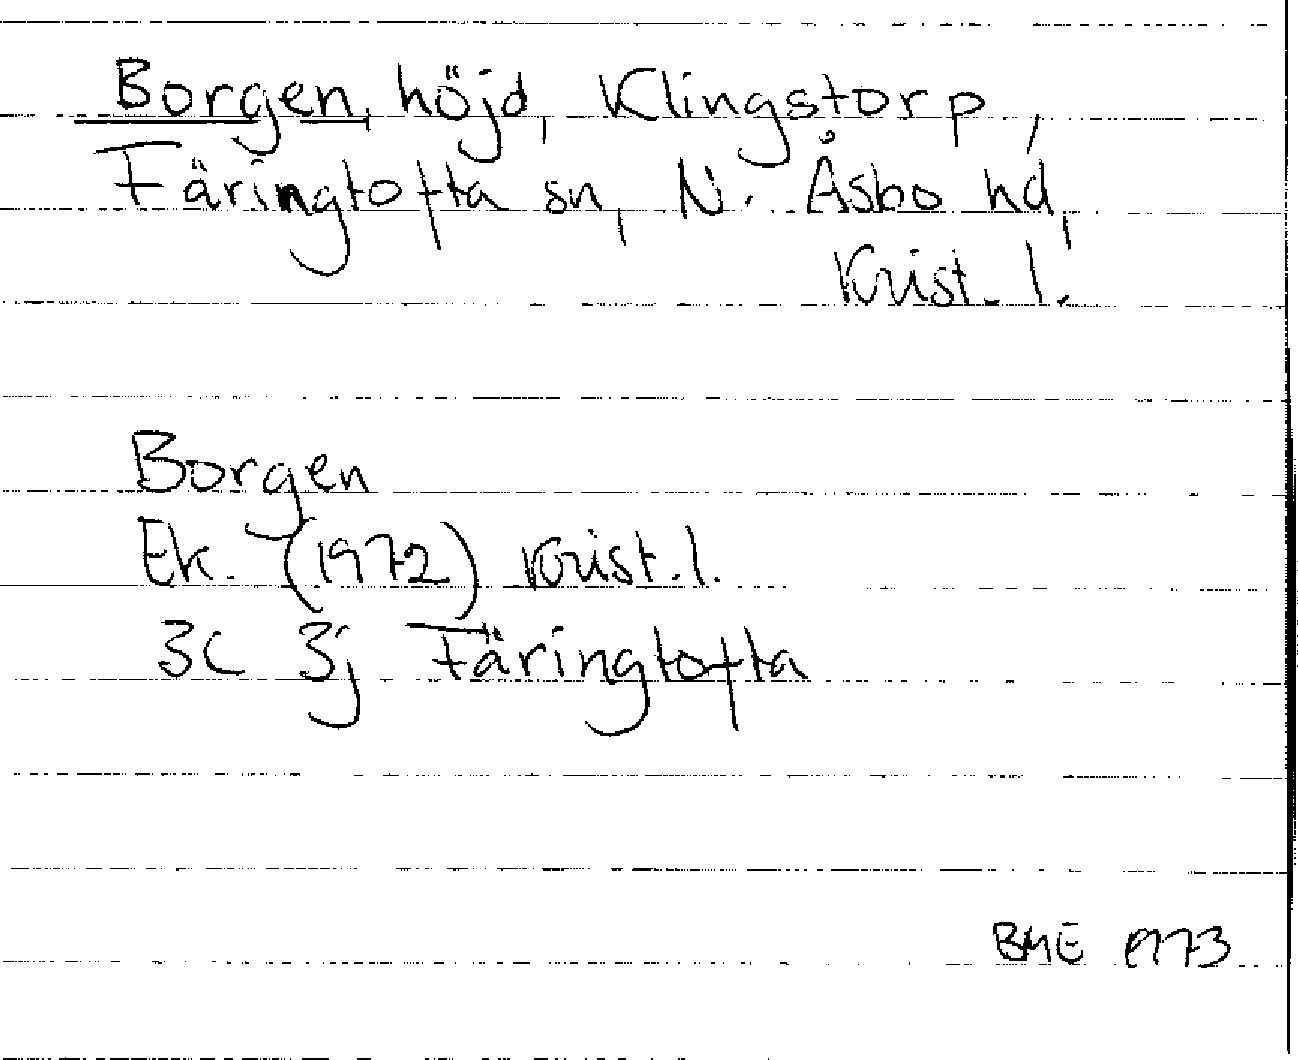 Borgen, höjd, Klingstorp,
Färingtofta sn, N. Åsbo hd,
Krist. l.
Borgen
Ek. (1972) Krist. l.
3C 3j Färingtofta
BME 1973